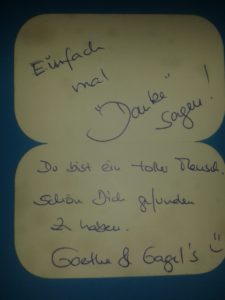 Einfach
mal
"Danke"
sagen!
Du bist ein toller Mensch.
Schön Dich gefunden
zu haben.
Goethe & Gagel's